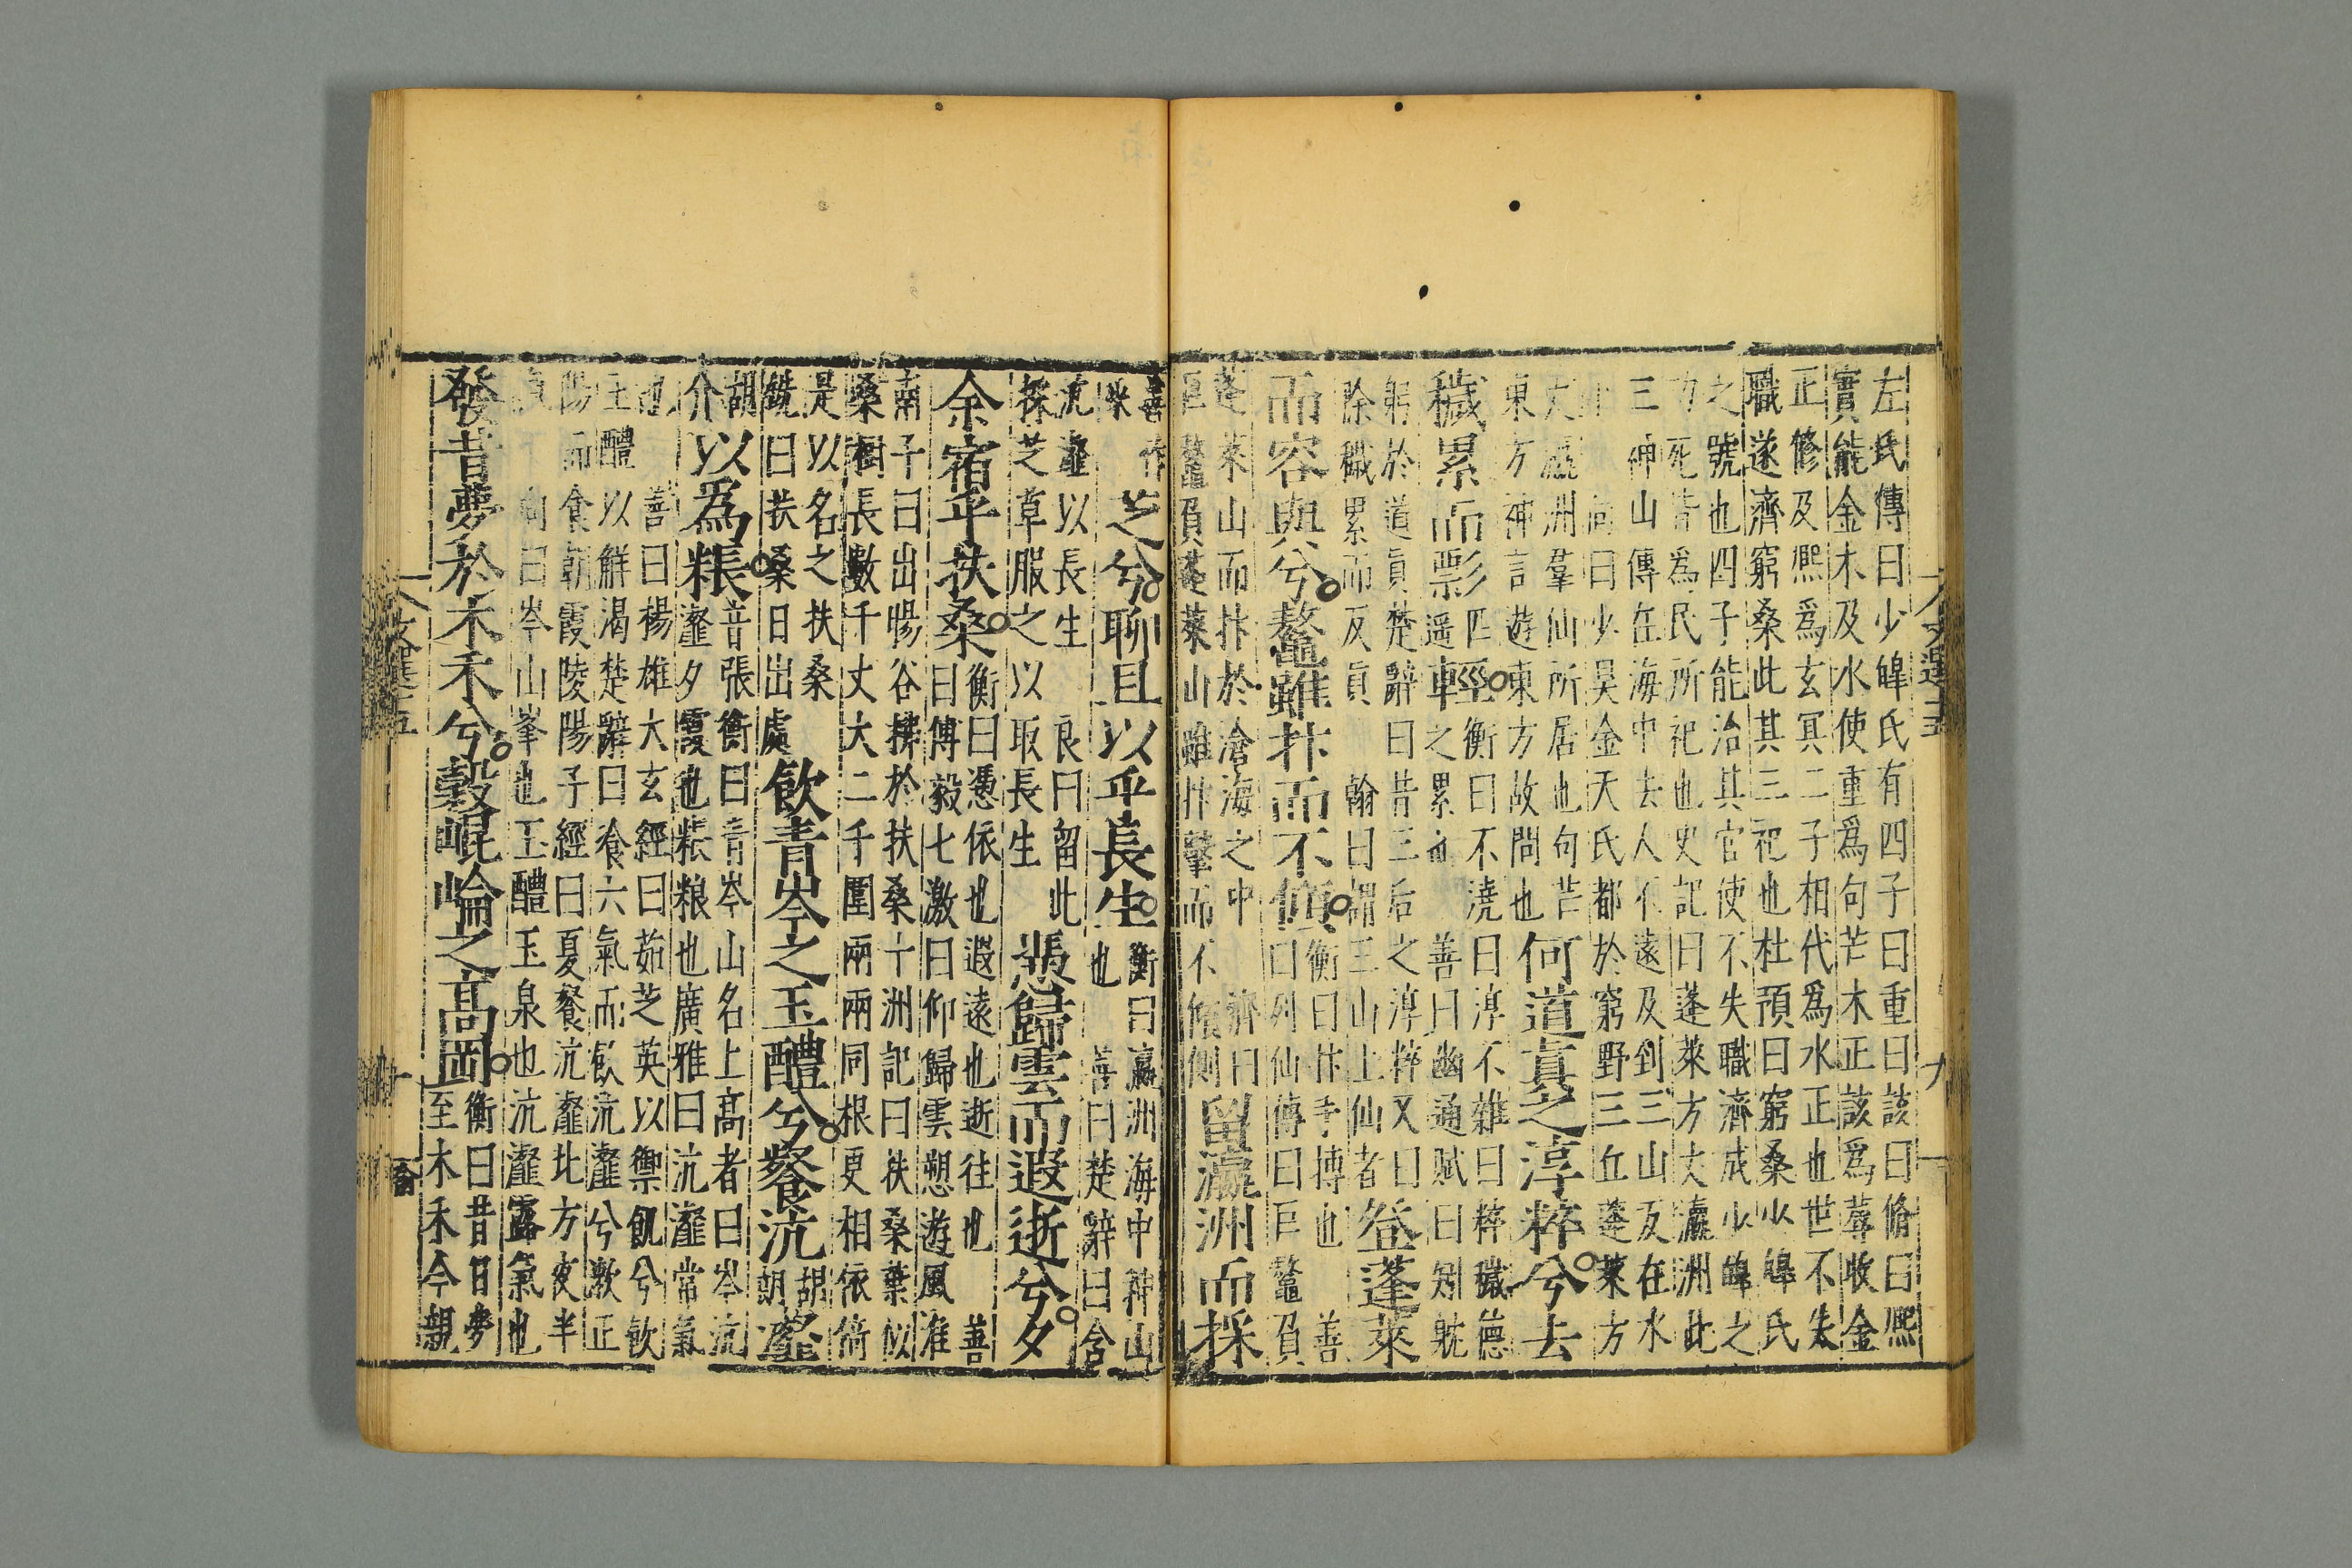 左氏傳曰少皥氏有四子曰重曰該曰脩曰熙
實能金木及水使重爲句芒木正該爲蓐收金
正修及熙爲玄冥二子相代爲水正也世不失
職遂濟窮桑此其三祀也杜預曰窮桑少皥氏
之號也四子能治其官使不失職濟成少皥之
功死皆爲民所祀也史記曰蓬萊方丈瀛洲此
三神山傳在海中去人不遠及到三山反在水
下 向曰少昊金天氏都於窮野三丘蓬萊方
丈瀛洲羣仙所居也句芒
東方神言遊東方故問也
何道真之淳粹兮去
穢累而票
彡匹
遥
輕
衡曰不澆曰淳不雜曰粹穢德
車之累 善曰幽通賦曰矧躭
躬於道真楚辭曰昔三后之淳粹又曰
除穢累而反真 翰曰謂三山上仙者
登蓬萊
而容與兮鼇雖抃而不傾
衡曰抃手搏也 善
曰列仙傳曰巨鼇負
蓬萊山而抃於滄海之中 濟曰
巨鼇負蓬萊山雖抃擊而不傾側
留瀛洲而採
善作
采
芝兮聊且以乎長生
衡曰瀛洲海中神山
也 善曰楚辭曰飡
沆瀣以長生 良曰留此
採芝草服之以取長生
憑歸雲而遐逝兮夕
余宿乎扶桑
衡曰憑依也遐遠也逝往也 善
曰傅毅七激曰仰歸雲愬遊風淮
南子曰出暘谷拂於扶桑十洲記曰扶桑葉似
桑樹長數千丈大二千圍兩兩同根更相依倚
是以名之扶桑
銑曰扶桑日出處
飲青岑之玉醴兮餐沆
胡
朗
瀣
胡
介
以爲粻
音張衡曰青岑山名上高者曰岑沆
瀣夕霞也粻粮也廣雅曰沆瀣常氣
也 善曰楊雄大玄經曰茹芝英以禦飢兮飲
玉醴以解渴楚辭曰飡六氣而飲沆瀣兮漱正
陽而食朝霞陵陽子經曰夏餐沆瀣北方夜半
氣下 向曰岑山峯也玉醴玉泉也沆瀣露氣也
發昔夢於木禾兮穀崐崘之高岡
衡曰昔日夢
至木禾今親
文選十五
九
文選十五
十